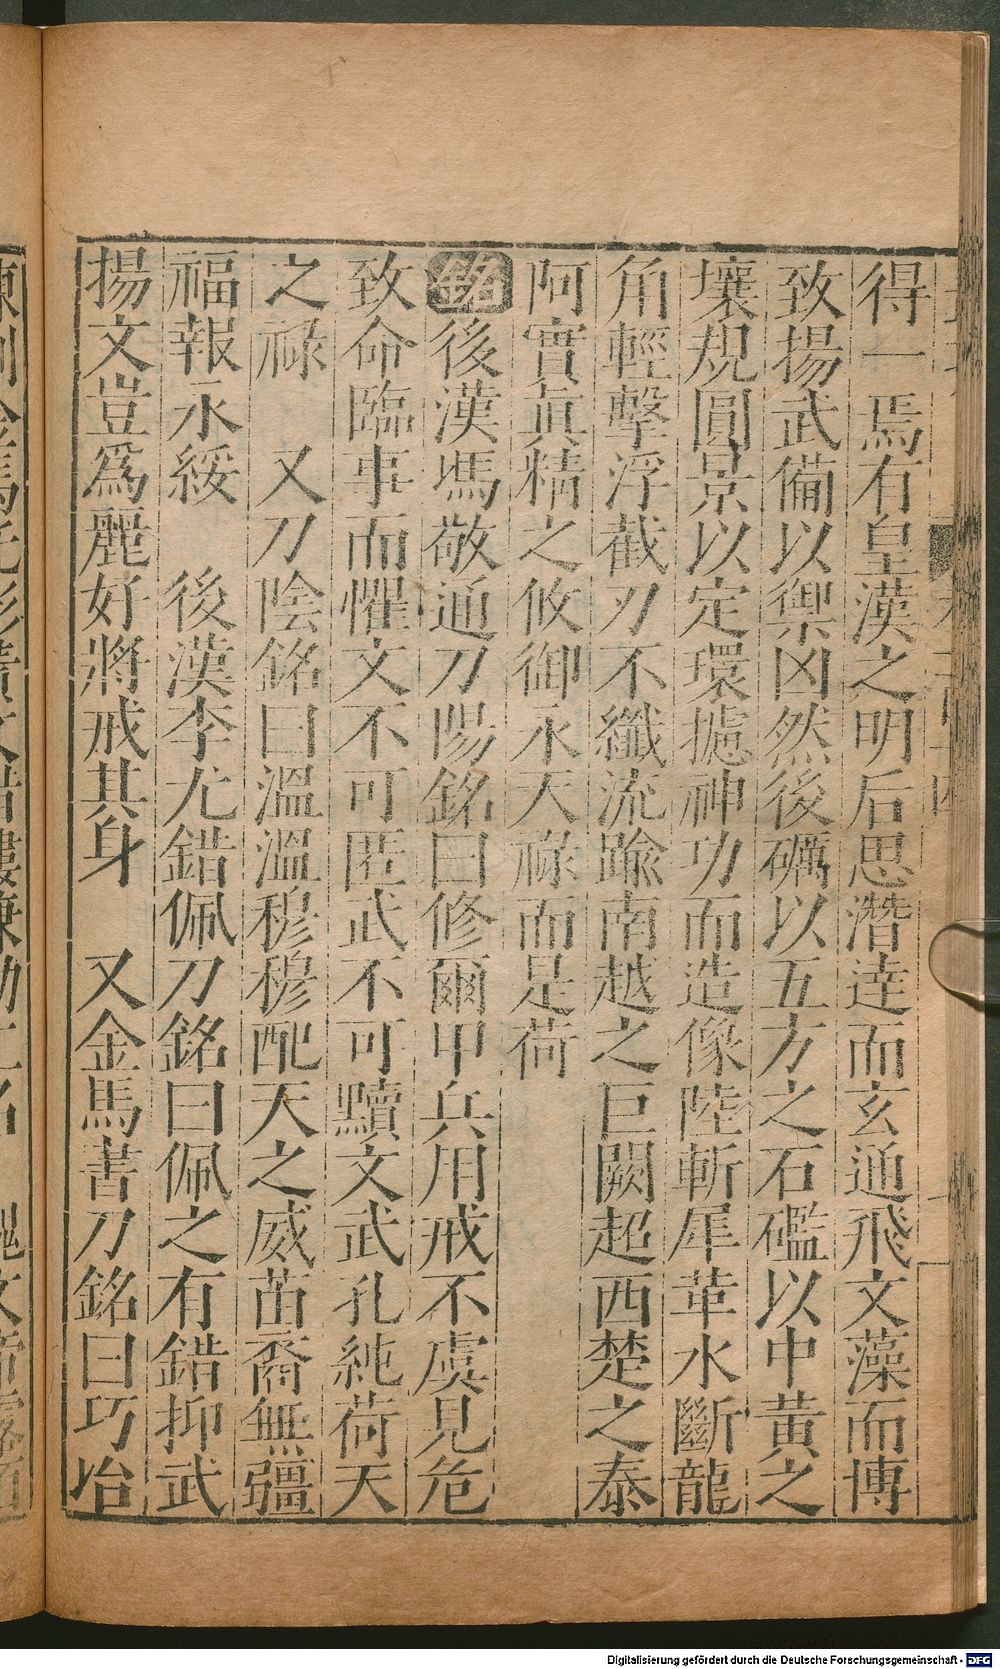 得一焉有皇漢之明后思潛達而玄通飛文藻而博
致揚武備以禦凶然後礪以五方之石礛以中黃之
壤規圓景以定環攄神功而造像陸斬犀革水斷龍
角輕擊浮截刃不纖流踰南越之巨闕超西楚之泰
阿實眞精之攸御永天祿而是荷
銘後漢馮敬通刀陽銘曰修爾甲兵用戒不虞見危
致命臨事而懼文不可匿武不可黷文武孔純荷天
之祿 又刀陰銘曰溫溫穆穆配天之威苗裔無疆
福報永綏 後漢李尤錯佩刀銘曰佩之有錯抑武
揚文豈爲麗好將戒其身 又金馬書刀銘曰巧冶
Digitalisierung gefördert durch die Deutsche Forschungsgemeinschaft - DFG